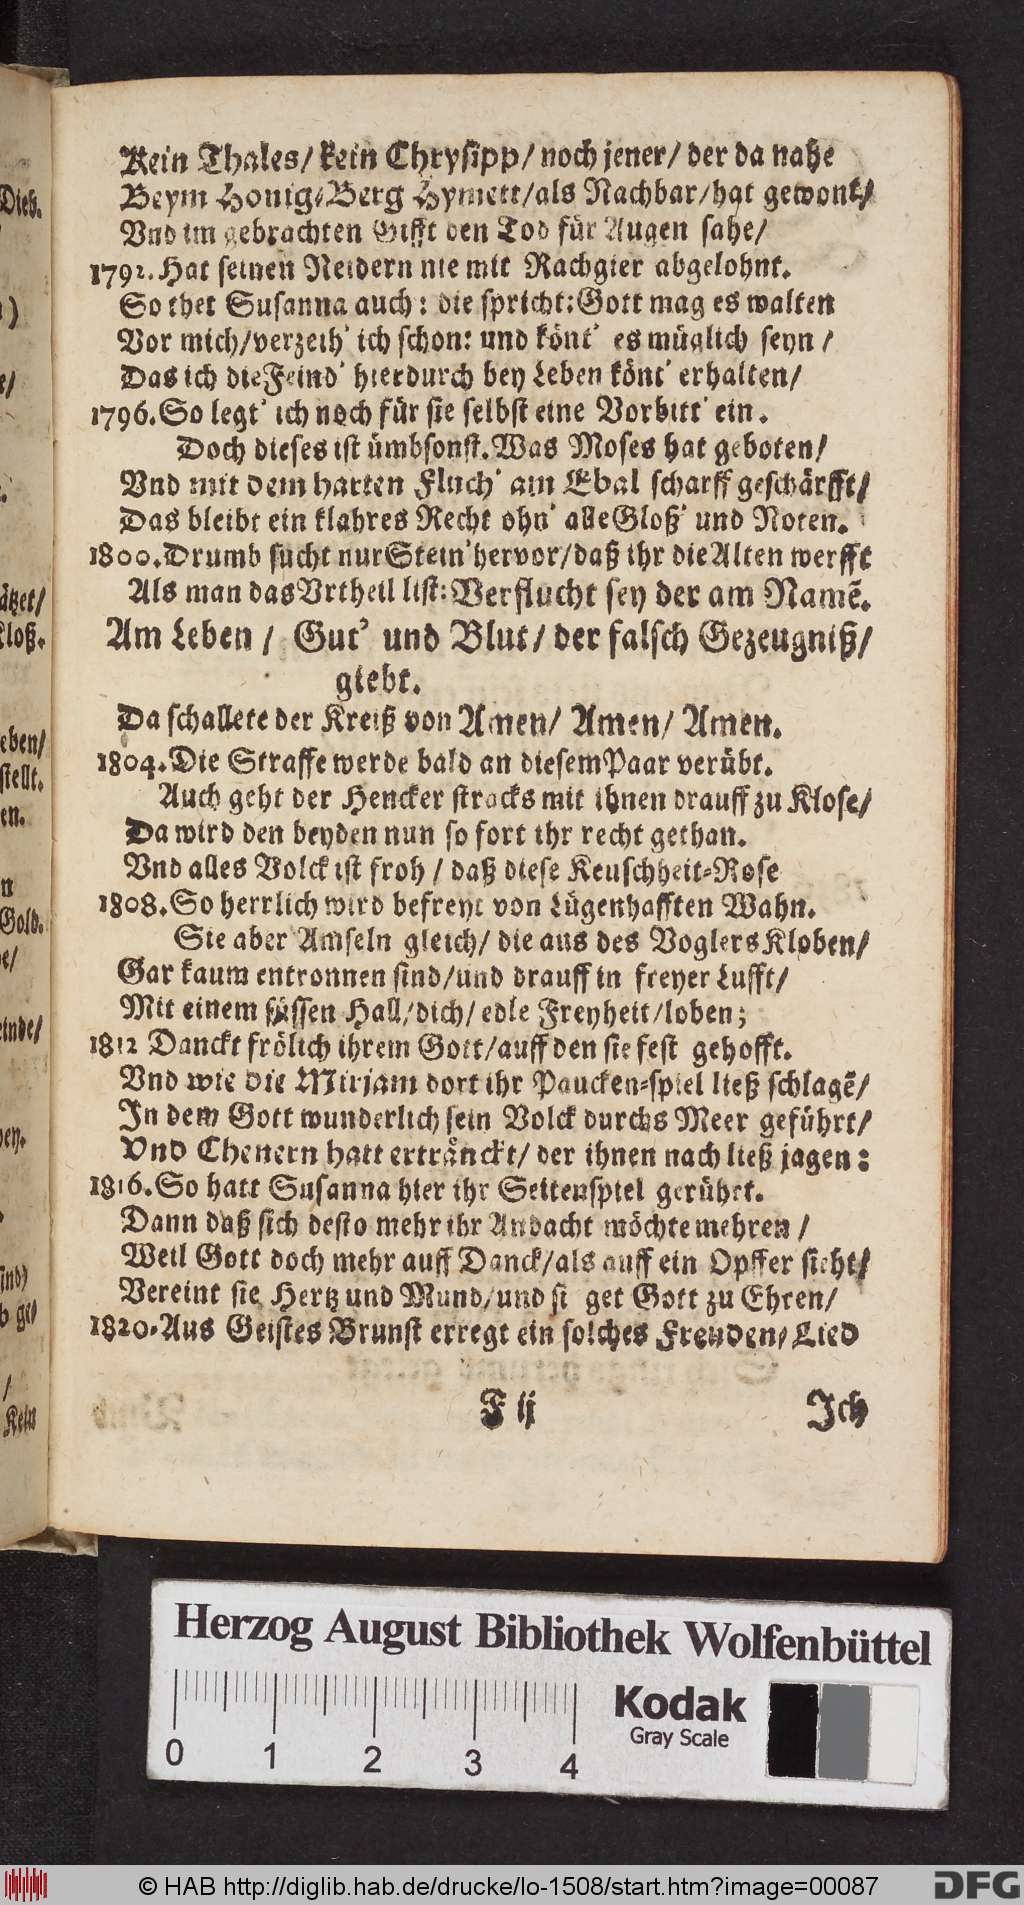 Kein Thales/ kein Chrysipp/ noch jener/ der da nahe
Beym Honig-Berg Hymett/als Nachbar/hat gewont/
Vnd im gebrachten Gifft den Tod für Augen sahe/
1792. Hat seinen Neidern nie mit Rachgier abgelohnt.
So thet Susanna auch: die spricht: Gott mag es walten
Vor mich/verzeih' ich schon: und könt' es müglich seyn/
Das ich die Feind' hierdurch bey Leben könt' erhalten/
1796. So legt' ich noch für sie selbst eine Vorbitt' ein.
Doch dieses ist ümbsonst. Was Moses hat geboten/
Vnd mit dem harten Fluch' am Ebal scharff geschärfft/
Das bleibt ein klahres Recht ohn' alle Gloß' und Noten.
1800. Drumb sucht nur Stein' hervor/daß ihr die Alten werfft
Als man das Vrtheil list: Verflucht sey der am Namẽ.
Am Leben/ Gut' und Blut/ der falsch Gezeugniß/
giebt.
Da schallete der Kreiß von Amen/ Amen/ Amen.
1804. Die Straffe werde bald an diesem Paar verübt.
Auch geht der Hencker stracks mit ihnen drauff zu Klose/
Da wird den beyden nun so fort ihr recht gethan.
Vnd alles Volck ist froh/ daß diese Keuschheit-Rose
1808. So herrlich wird befreyt von Lügenhafften Wahn.
Sie aber Amseln gleich/ die aus des Voglers Kloben/
Gar kaum entronnen sind/und drauff in freyer Lufft/
Mit einem süssen Hall/dich/ edle Freyheit/loben;
1812 Danckt frölich ihrem Gott/auff den sie fest gehofft.
Vnd wie die Mirjam dort ihr Paucken-spiel ließ schlagẽ/
In dem Gott wunderlich sein Volck durchs Meer geführt/
Vnd Chenern hatt ertränckt/ der ihnen nach ließ jagen:
1816. So hatt Susanna hier ihr Seitenspiel gerührt.
Dann daß sich desto mehr ihr Andacht möchte mehren/
Weil Gott doch mehr auff Danck/als auff ein Opffer sieht/
Vereint sie Hertz und Mund/und si get Gott zu Ehren/
1820. Aus Geistes Brunst erregt ein solches Freuden/Lied
F ij
Ich
Dieb.
ätzet/
kloß.
eben/
stellt.
en.
Gold.
einde/
Kein
Herzog August Bibliothek Wolfenbüttel
0 1 2 3 4
Kodak
Gray Scale
© HAB http://diglib.hab.de/drucke/lo-1508/start.htm?image=00087
DFG